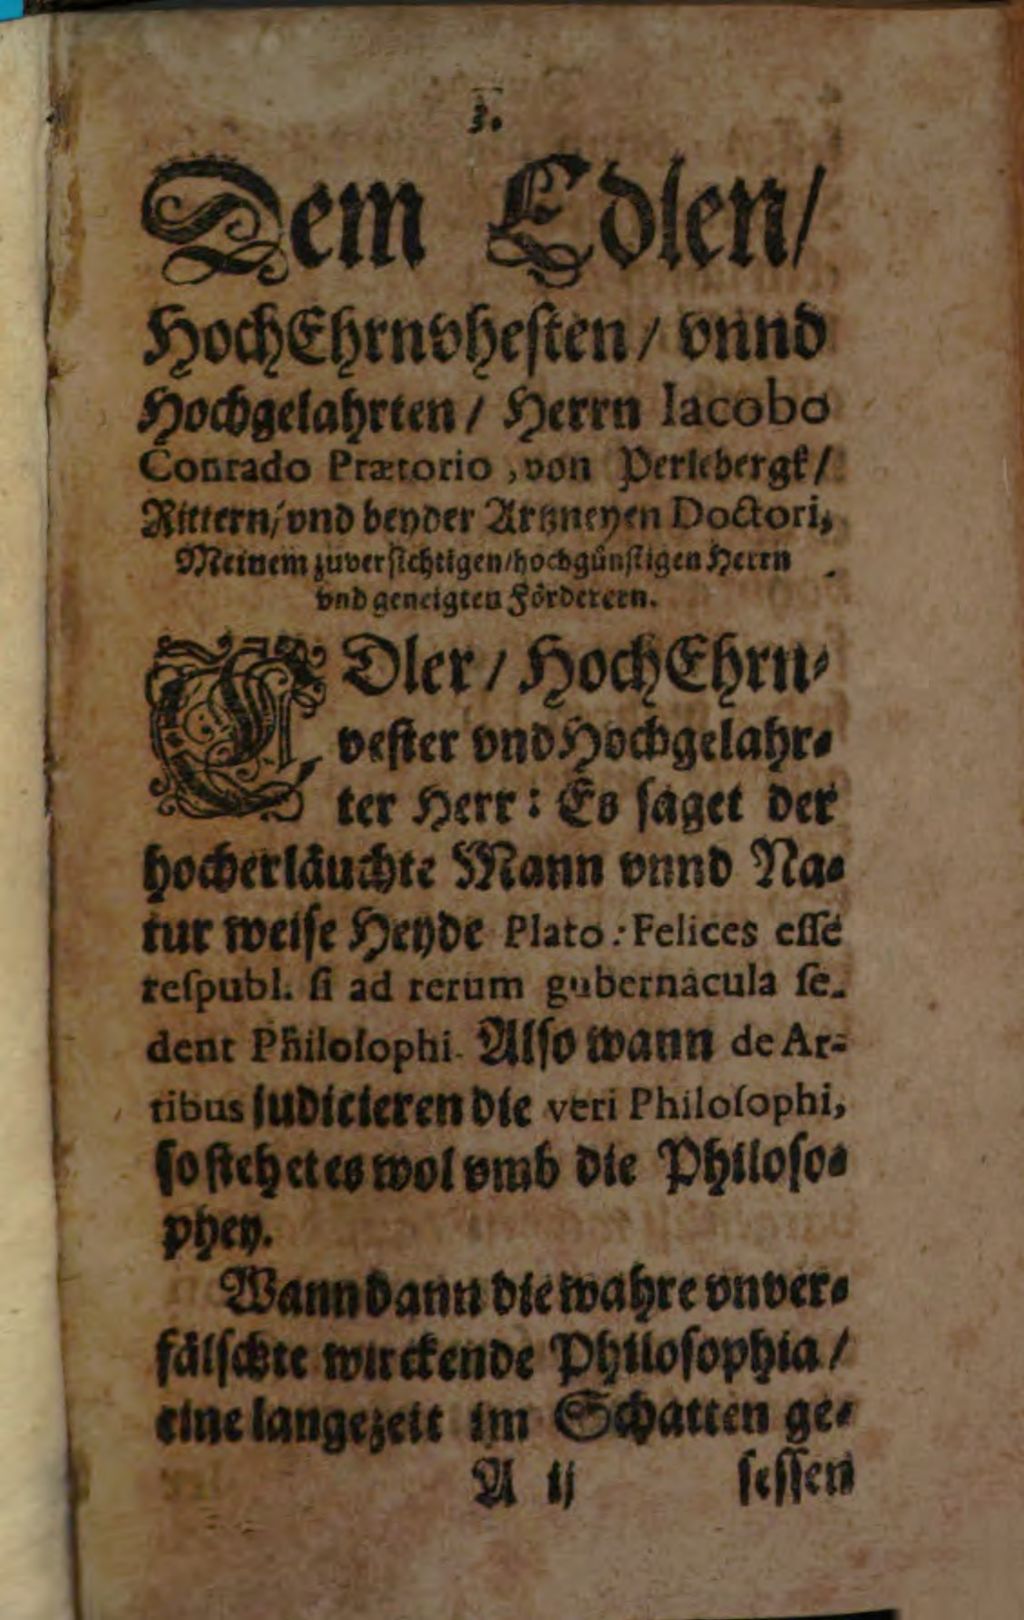 3.
Dem Edlen/
HochEhrnvhesten/ vnnd
Hochgelahrten/ Herrn Iacobo
Conrado Prætorio, von Perlebergk/
Rittern/ vnd beyder Artzneyen Doctori,
Meinem zuversichtigen/hochgünstigen Herrn
vnd geneigten Förderern.
EDler/ HochEhrn-
vester vnd Hochgelahr-
ter Herr: Es saget der
hocherläuchte Mann vnnd Na-
tur weise Heyde Plato: Felices esse
respubl. si ad rerum gubernacula se-
dent Philosophi. Also wann de Ar-
tibus judicieren die veri Philosophi,
so stehet es wol vmb die Philoso-
phey.
Wann dann die wahre vnver-
fälschte wirckende Philosophia/
eine langezeit im Schatten ge-
A ij sessen